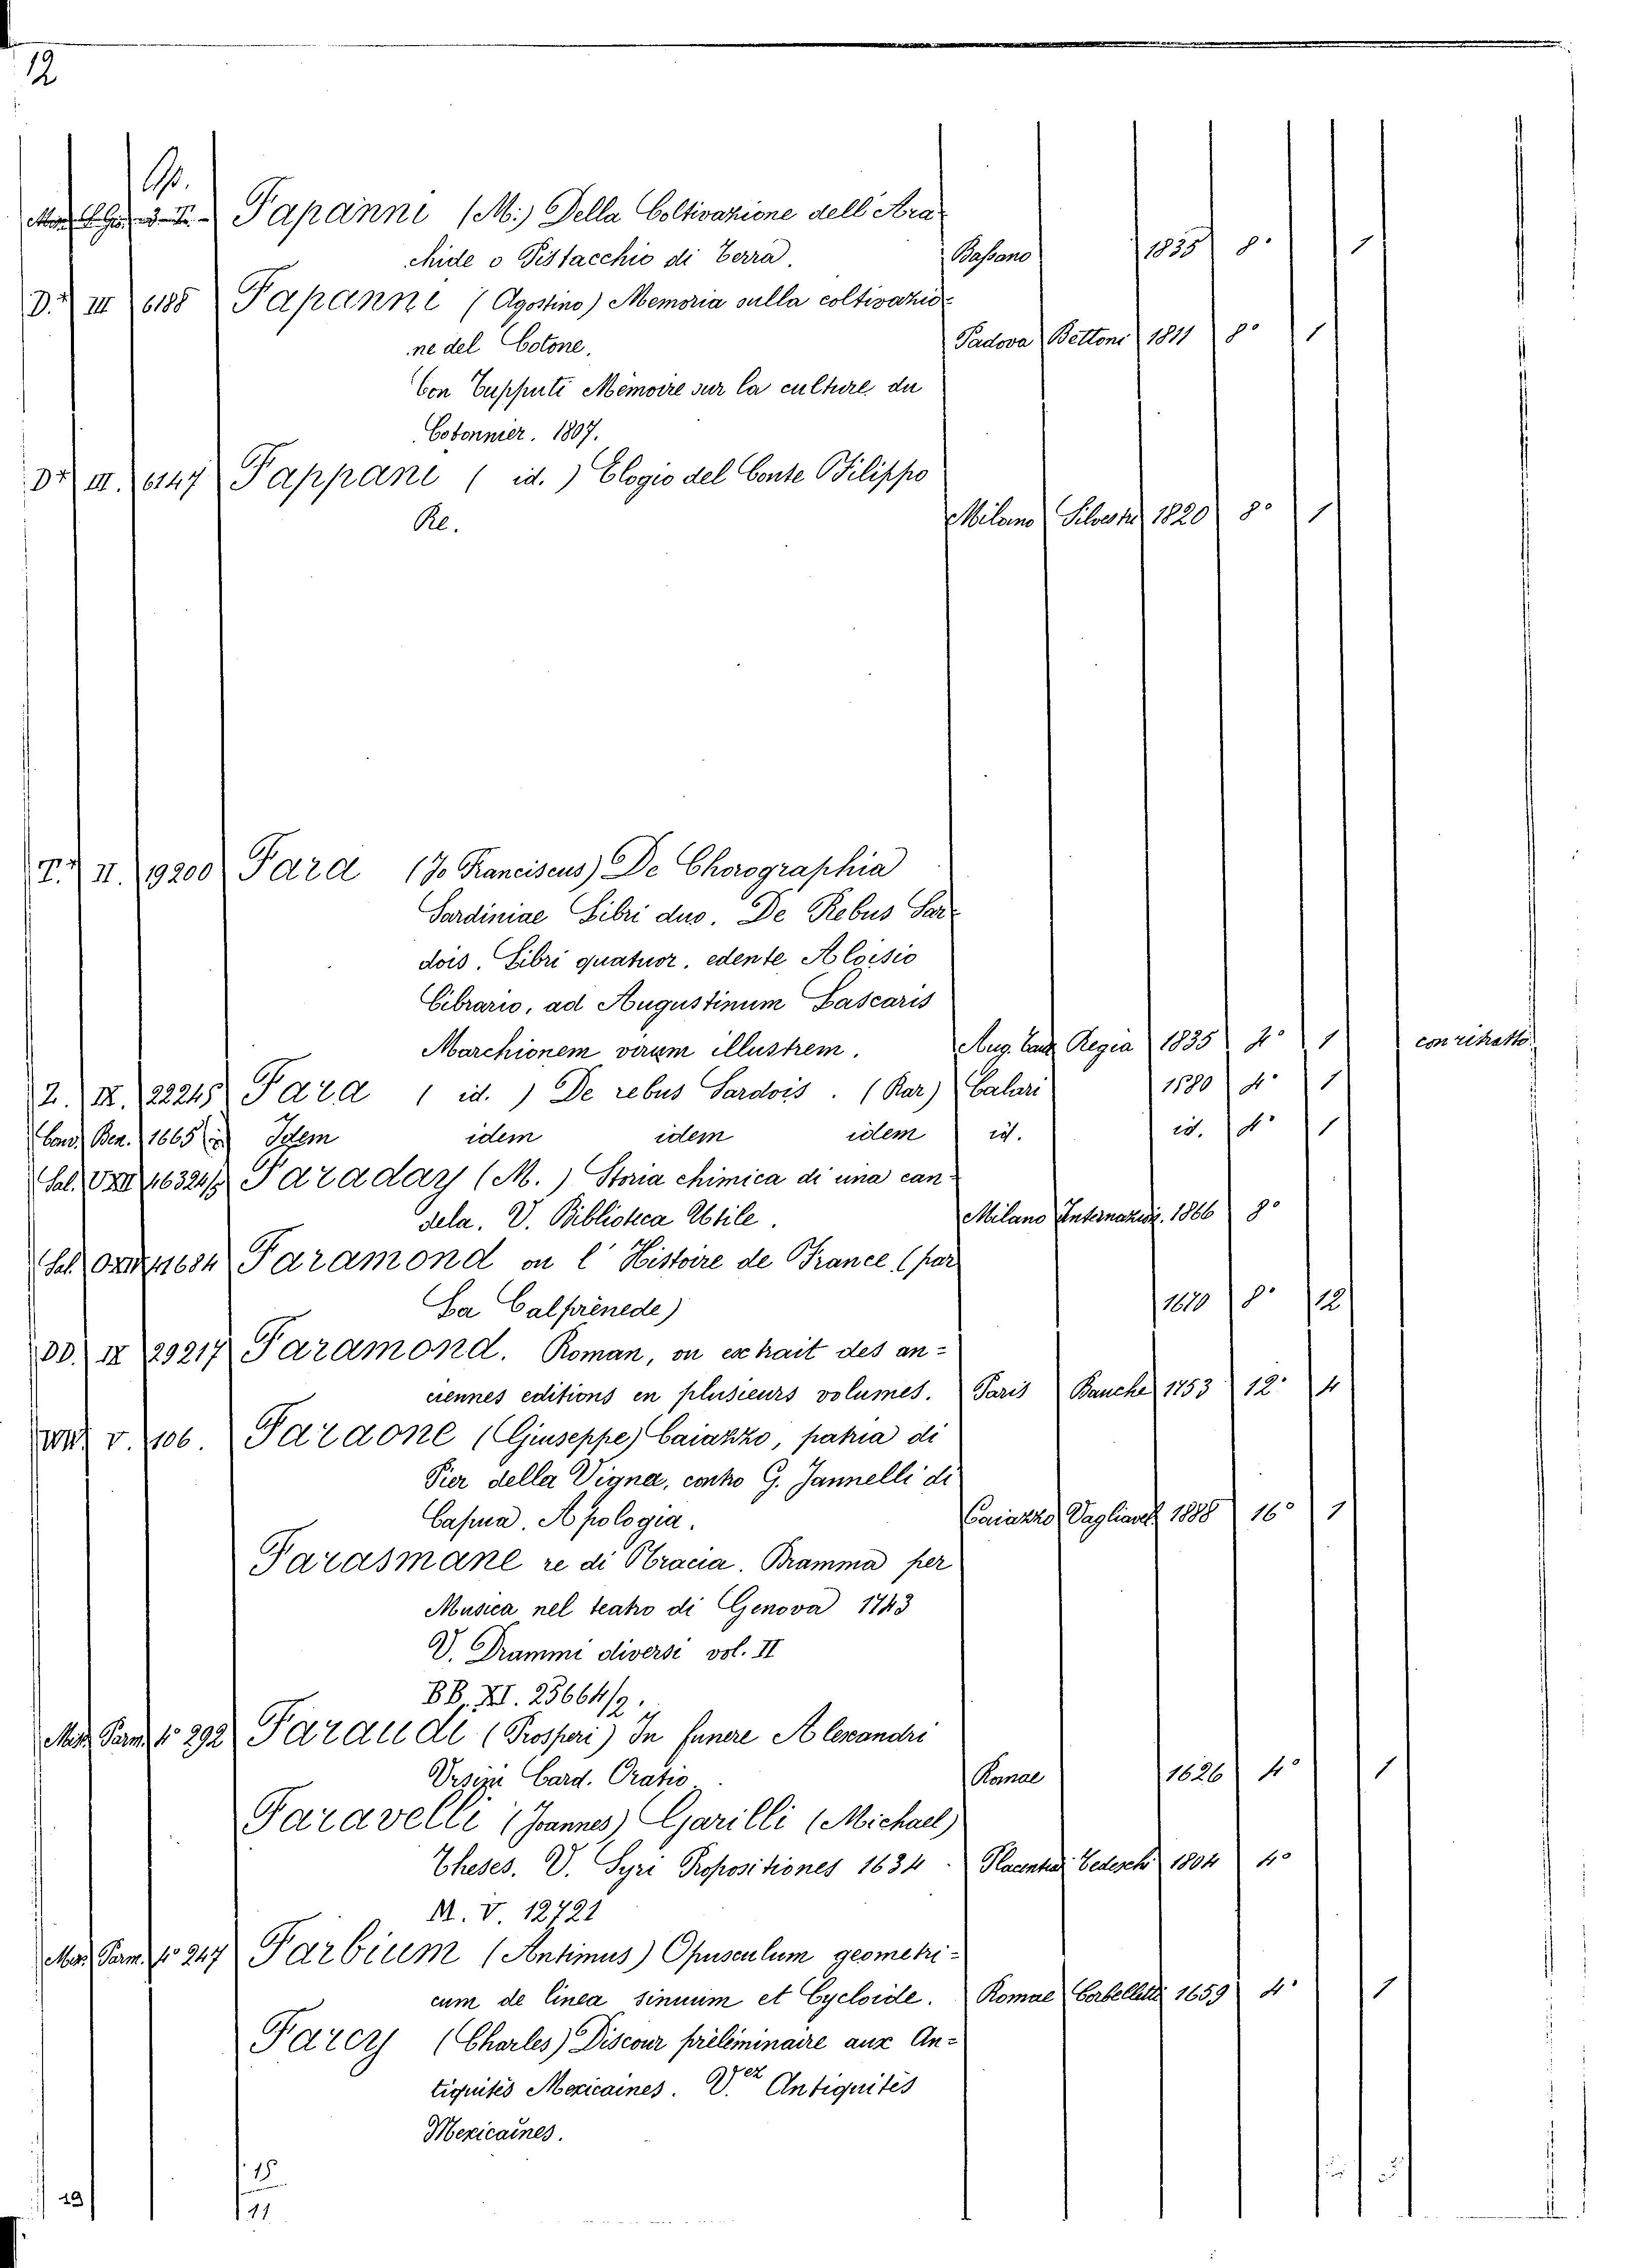 12
Op.
Papanni (M.) Della Coltivazione dell' Ara-
chide o Pistacchio di Terra. Bassano 1835 8.° 1
D.ª III 6188 Papanni (Agostino) Memoria sulla coltivazio-
ne del Cotone. Padova Bettoni 1811 8° 1
Con Tupputi Mémoire sur la culture du
Cotonnier. 1807.
Dª III. 6147 Pappani ( id. ) Elogio del Conte Filippo
Re. Milano Silvestri 1820 8° 1
T.ª II. 19200 Fara (Jo Franciscus) De Chorographia
Sardiniae Libri duo. De Rebus Sar-
dois. Libri quatuor. edente Aloisio
Cibrario, ad Augustinum Lascaris
Marchionem virum illustrem. Aug. Taur. Regia 1835 4° 1 con ritratto
Z. IX. 22245 Fara ( id. ) De rebus Sardois. (Rar) Calari 1580 4° 1
Ben. 1665 Idem idem idem idem id. id. 4° 1
Faraday (M.) Storia chimica di una can-
dela. V. Biblioteca Utile. Milano Internazion. 1866 8°
Faramond ou l' Histoire de France (par
La Calprènede) 1670 8° 12
DD. IX 29217 Faramond. Roman, ou extrait des an-
ciennes editions en plusieurs volumes. Paris Bauche 1753 12° 4
V. 106. Faraone (Giuseppe) Caiazzo, patria di
Pier della Vigna, contro G. Jannelli di
Capua. Apologia. Caiazzo 1888 16° 1
Farasmane re di Tracia. Dramma per
Musica nel teatro di Genova 1743
V. Drammi diversi vol. II
BB. XI. 25664/2.
Parm. 4° 292 Faraudi (Prosperi) In funere Alexandri
Ursini Card. Oratio. Romae 1626 4° 1
Faravelli (Joannes) Garilli (Michael)
Theses. V. Syri Propositiones 1634. Placentiae Tedeschi 1804 4°
M. V 12721
Parm. 4° 247 Farbium (Antimus) Opusculum geometri-
cum de linea sinuum et Cycloide. Romae Corbelletti 1659 4° 1
Farcy (Charles) Discour prèliminaire aux An-
tiquités Mexicaines. V.ez Antiquités
Mexicaines.
15
11